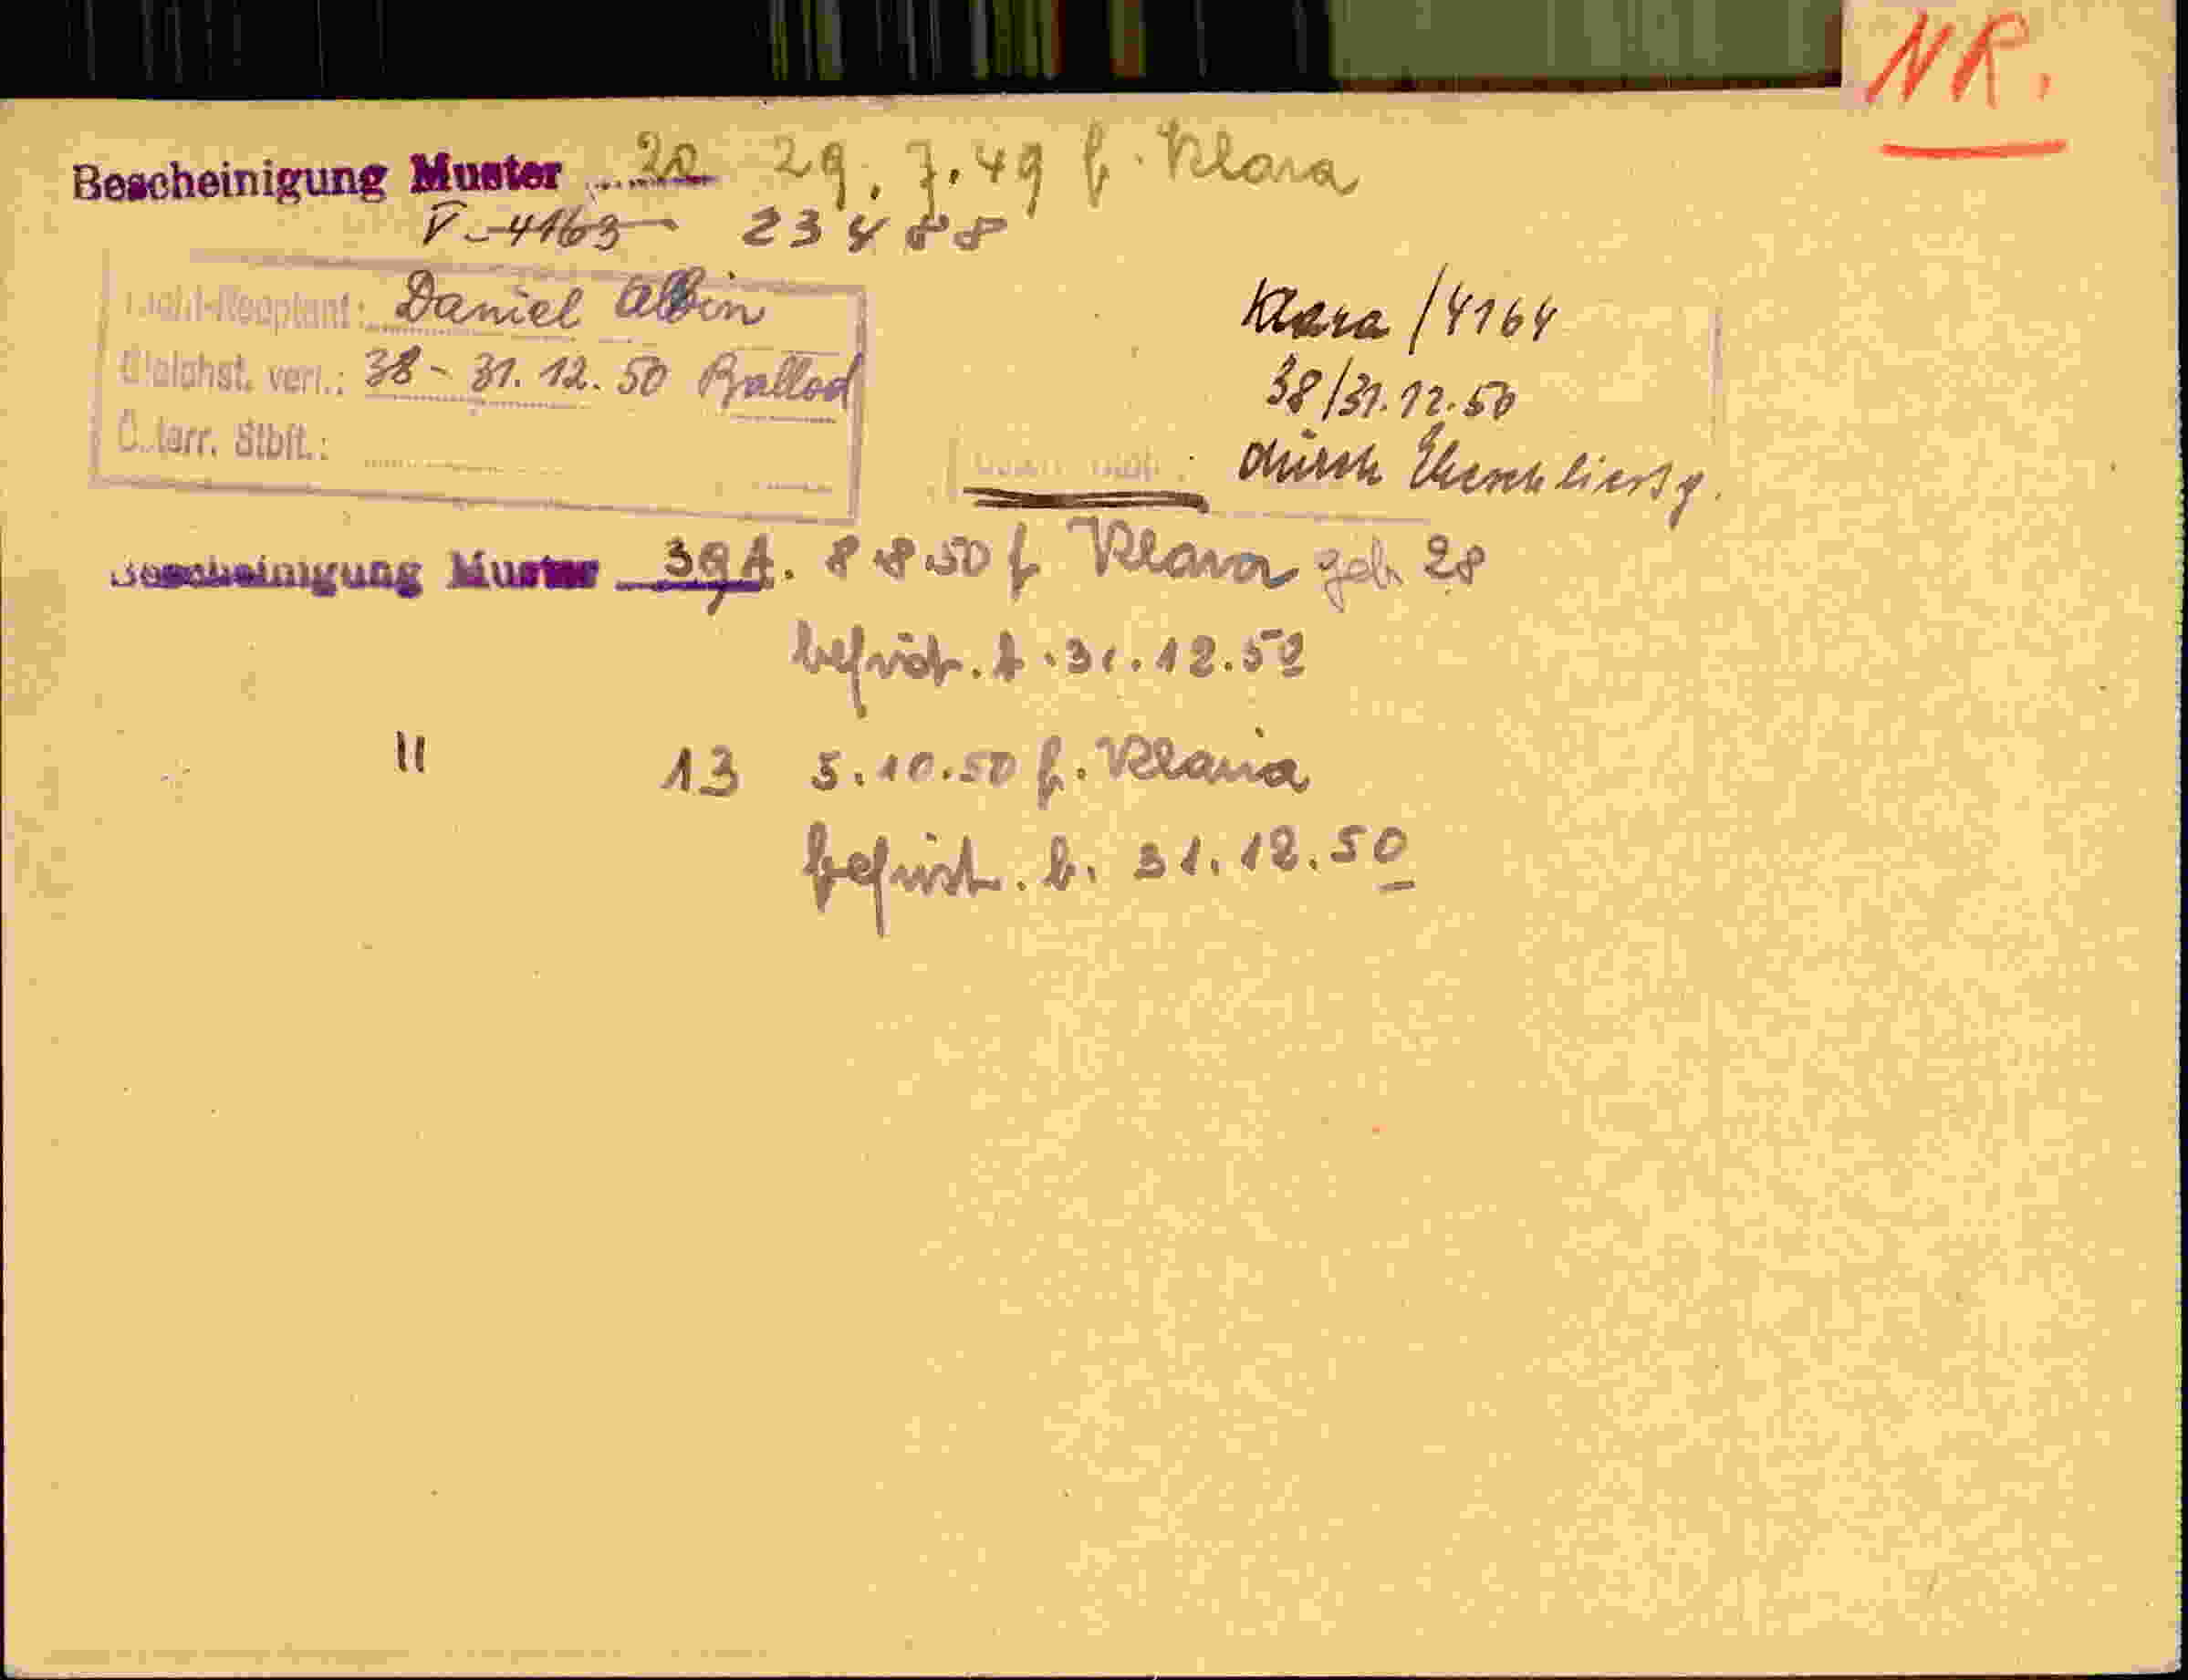 NR.
Bescheinigung Muster 20 29.7.49 f. Klara
V-4163 23488
Daniel Albin
38 - 31.12.50 Ballod
Klara / 4164
38/31.12.50
durch Eheschliessg.
Bescheinigung Muster 39A. 8.8.50 f. Klara geb. 28
befrist. b. 31.12.50
" 13 5.10.50 f. Klara
befrist. b. 31.12.50